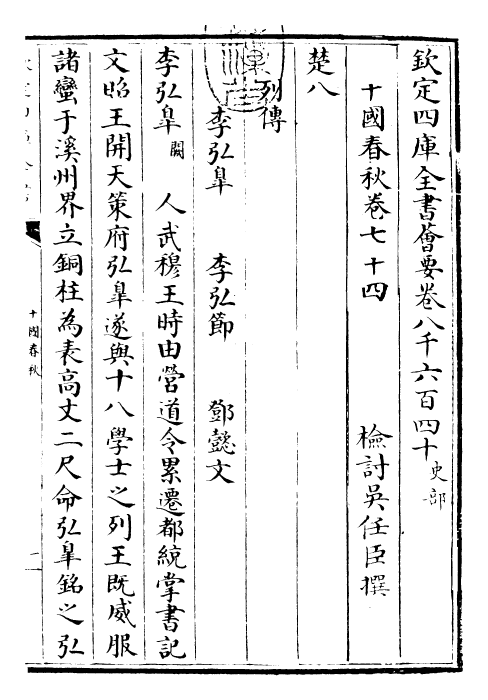 欽定四庫全書薈要卷八千六百四十史部
十國春秋卷七十四
檢討吳任臣撰
楚八
列傳
李弘臯 李弘節 鄧懿文
李弘臯闕 人武穆王時由營道令累遷都統掌書記
文昭王開天策府弘臯遂與十八學士之列王既威服
諸蠻于溪州界立銅柱為表高丈二尺命弘臯銘之弘
十國春秋
一